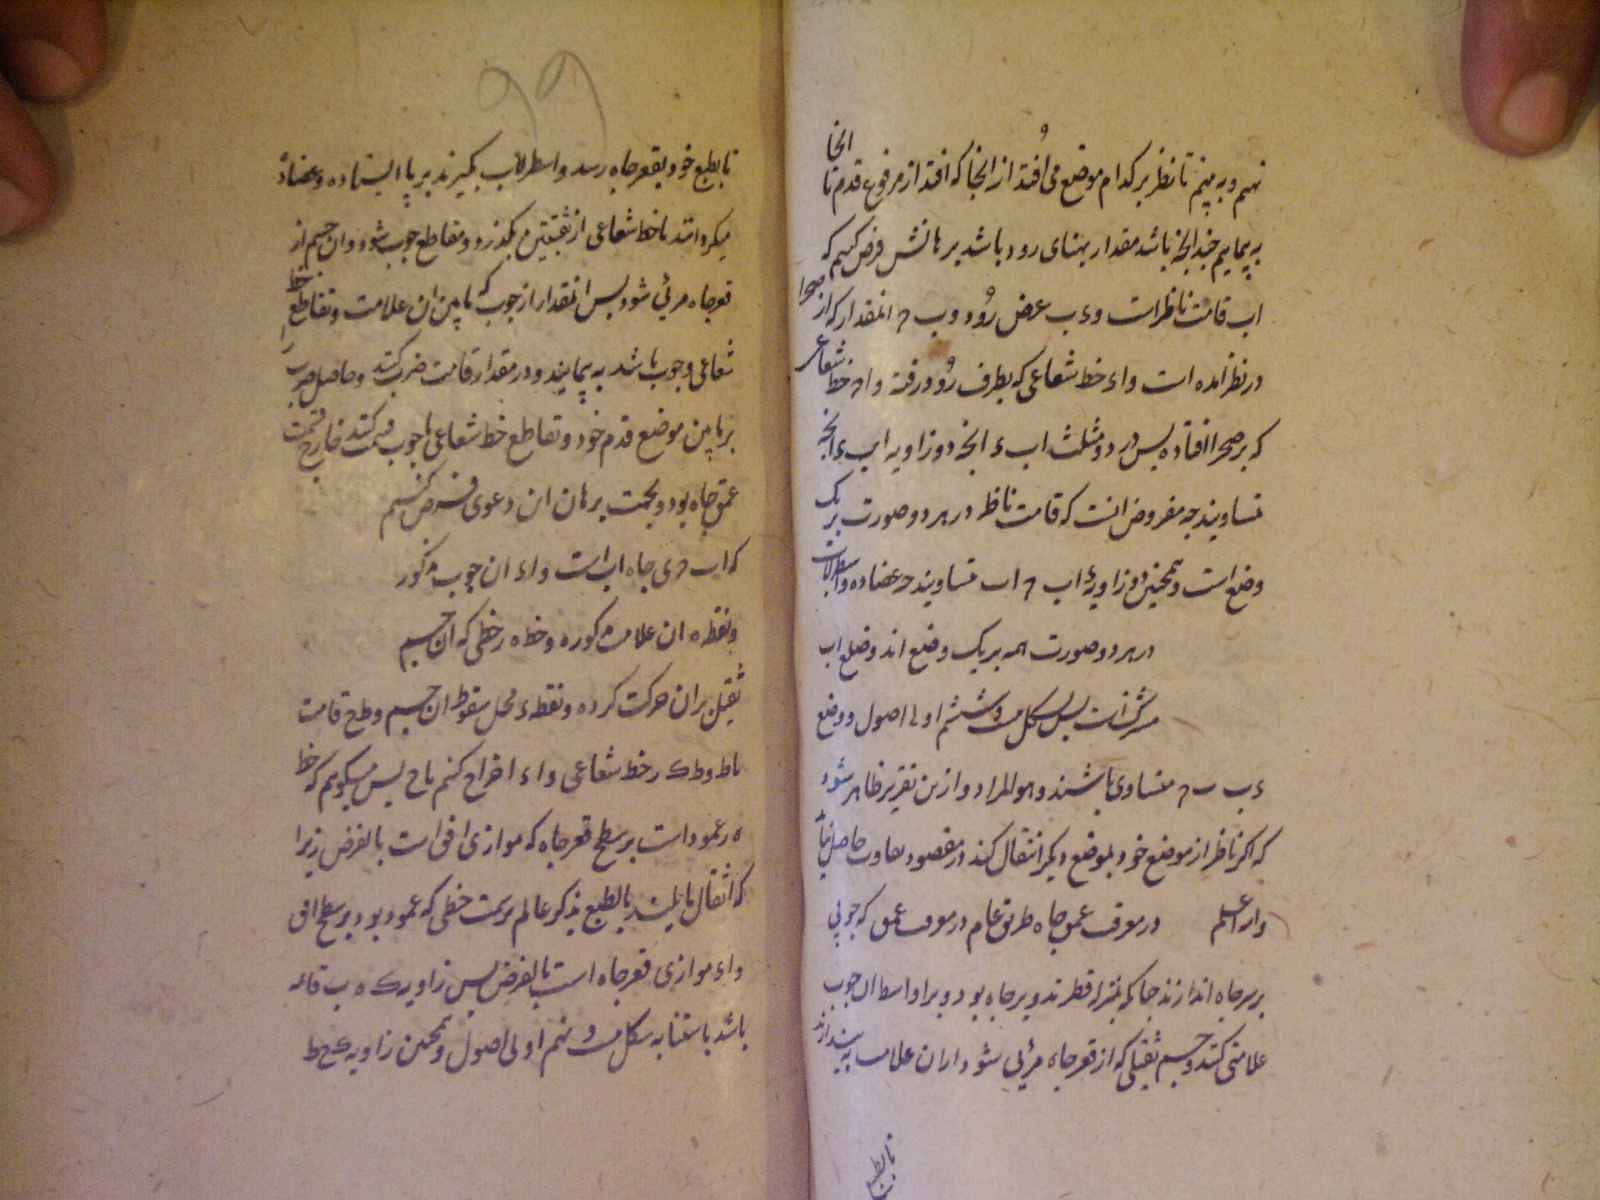 نهیم و به بینیم تا نظر بر کدام موضع می افتد از انجا که افتد از مرفوع قدم تا انجا
به پیماییم چندانچه باشد مقدار پهنای رود باشد برهانش فرض کنیم که
اب قامت ناظر است و ءب عرض رود و ب ح انمقدار که از صحرا
در نظر امده است و اء خط شعاعی که بطرف رود رفته و اح خط شعاعی
که بر صحرا افتاده پس در دو مثلث اب ء ابح دو زاویه اب ء ابح
متساویند چه مفروض انست که قامت ناظر در هر دو صورت بر یک
وضع است و همچنین دو زاویهٔ ء اب ح اب متساویند چه عضاده و اسطرلاب
در هر دو صورت همه بر یک وضع اند و ضلع اب
مشترکست پس بشکل بیست و ششم اولی اصول دو وضع
ءب ب ح متساوی باشند و هو المراد و ازین تقریر ظاهر شود
که اگر ناظر از موضع خود بموضع دیگر انتقال کند در مقصود تفاوت حاصل نیاید
والله اعلم در معرفت عمق چاه طریق عام در معرفت عمق که چوبی
بر سر چاه اندازند چنانکه بمنزله قطر تدویر چاه بود و بر اواسط ان چوب
علامتی کنند و جسم ثقیلی که از قعر چاه مرئی شود از ان علامت به بیندازند
تا بطبع
تا بطبع خود بقعر چاه رسد و اسطرلاب بگیرند بر پا ایستاده و عضاده
میگردانند تا خط شعاعی از ثقبتین بگذرد و مقاطع چوب شود و ان جسم از
قعر چاه مرئی شود پس انمقدار از چوب که مابین ان علامت و تقاطع خط
شعاعی و چوب باشد به پیمایند و در مقدار قامت ضرب کنند و حاصل ضرب را
بر مابین موضع قدم خود و تقاطع خط شعاعی با چوب قسمت کنند خارج قسمت
عمق چاه بود و بجهت برهان ان دعوی فرض کنیم
که اب ح ی چاه اب است و اء ان چوب مذکور
و نقطه ه ان علامت مذکوره و خط ه ر خطی که ان جسم
ثقیل بران حرکت کرده و نقطه ء محل سقوط ان جسم و ط ح قامت
ناظر و ط ک ر خط شعاعی و اء اخراج کنیم تا ح پس میگوییم که خط
ه ر عمود است بر سطح قعر چاه که موازی افق است بالفرض زیرا
که اثقال مایلند بالطبع بمرکز عالم بر سمت خطی که عمود بود بر سطح افق
و اء موازی قعر چاه است بالفرض پس زاویه ک ه ب قائمه
باشد باستنابه شکل بیست و نهم اولی اصول و همچنین زاویه ک ح ط